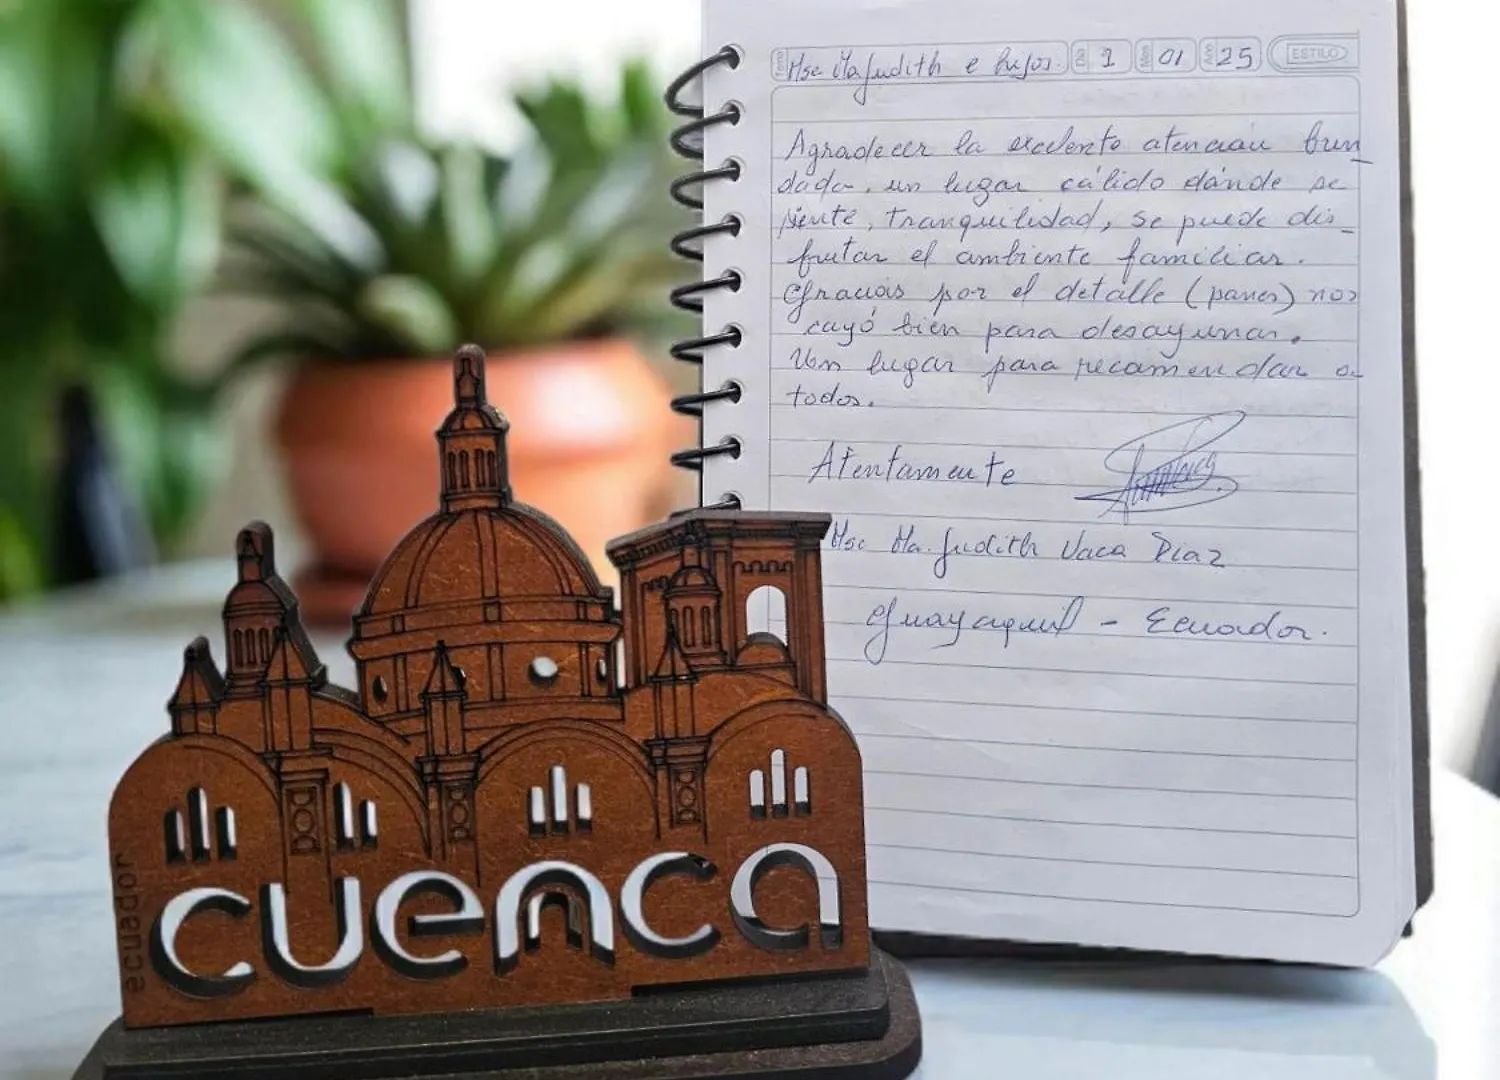 Tema Msc Ma Judith e hijos. Día 1 Mes 01 Año 25 ESTILO
Agradecer la excelente atención brin_
dada, un lugar cálido dónde se
siente, tranquilidad, se puede dis_
frutar el ambiente familiar.
Gracias por el detalle (panes) nos
cayó bien para desayunar.
Un lugar para recomendar a
todos.
Atentamente
Msc Ma. Judith Vaca Diaz
Guayaquil - Ecuador.
ecuador
cuenca